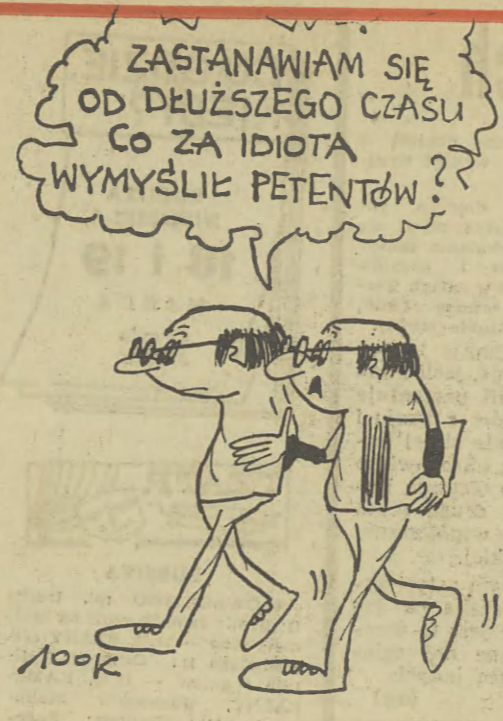 ZASTANAWIAM SIĘ
OD DŁUŻSZEGO CZASU
CO ZA IDIOTA
WYMYŚLIŁ PETENTÓW?
100K